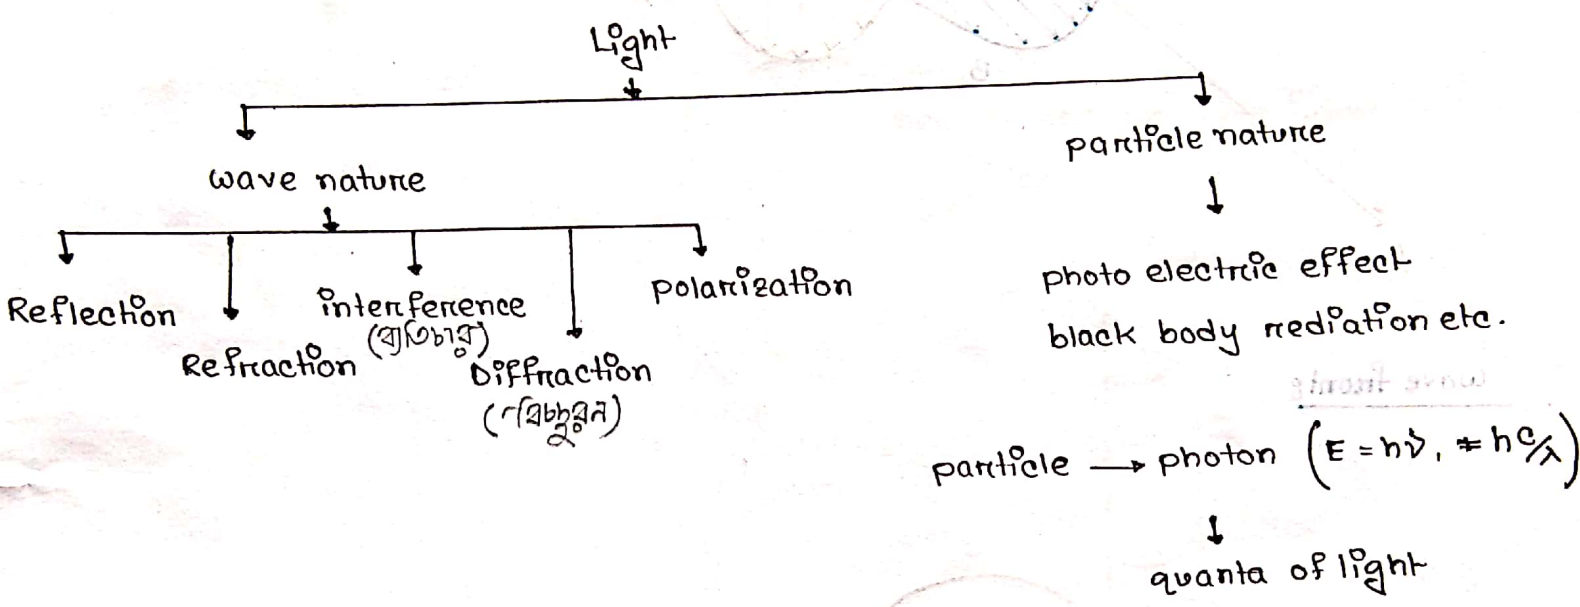 Light
wave nature
particle nature
Reflection
Refraction
interference
(ব্যতিচার)
Diffraction
(বিচ্ছুরন)
polarization
photo electric effect
black body rediation etc.
particle → photon (E = hν, = hc/λ)
quanta of light